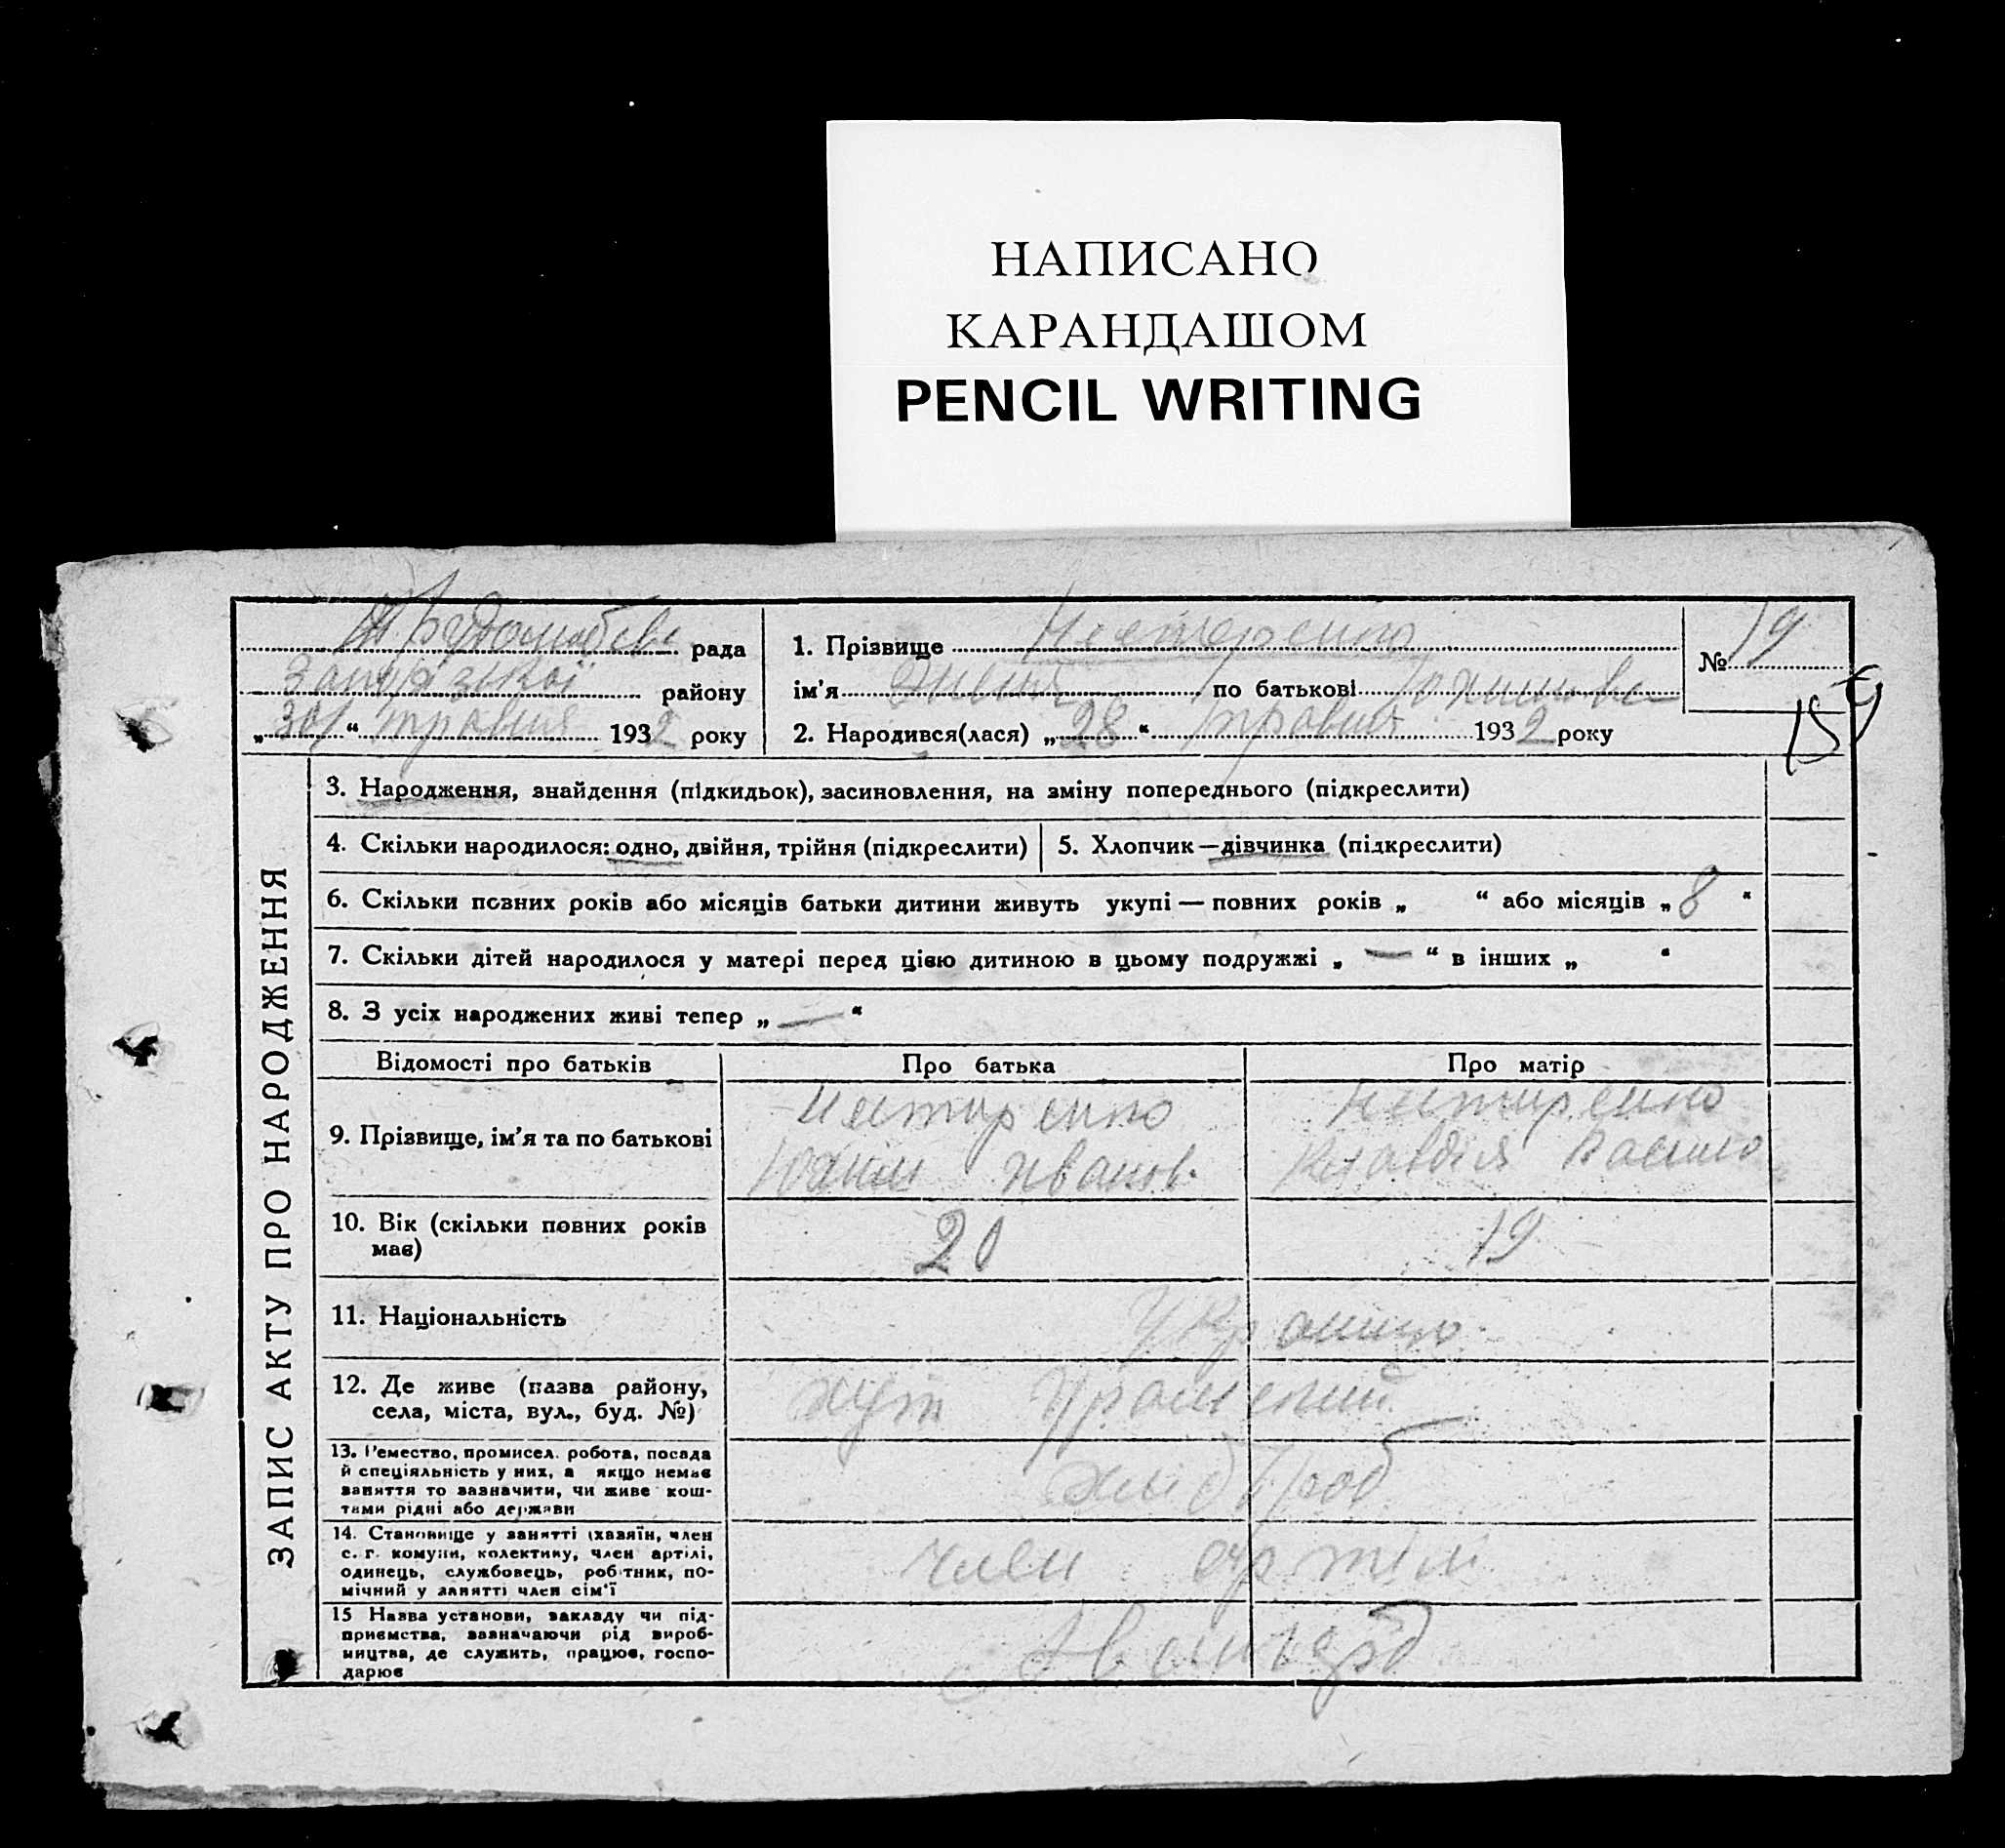 НАПИСАНО
КАРАНДАШОМ
PENCIL WRITING
рада
району
„30“ травня 1932 року
1. Прізвище Нестеренко
ім'я по батькові
2. Народився(лася) „28“ травня 1932 року
№ 19
159
ЗАПИС АКТУ ПРО НАРОДЖЕННЯ
3. Народження, знайдення (підкидьок), засиновлення, на зміну попереднього (підкреслити)
4. Скільки народилося: одно, двійня, трійня (підкреслити)
5. Хлопчик — дівчинка (підкреслити)
6. Скільки повних років або місяців батьки дитини живуть укупі — повних років „ “ або місяців „8“
7. Скільки дітей народилося у матері перед цією дитиною в цьому подружжі „—“ в інших „ “
8. З усіх народжених живі тепер „—“
Відомості про батьків Про батька Про матір
9. Прізвище, ім'я та по батькові
Нестиренко
Юхим Иванов.
Нестиренко
Клавдія Васило
10. Вік (скільки повних років
має)
20 19
11. Національність
12. Де живе (назва району,
села, міста, вул., буд. №)
хут
13. Ремество, промисел. робота, посада
й спеціяльність у них, а якщо немає
заняття то зазначити, чи живе кош-
тами рідні або держави
хлібороб
14. Становище у занятті (хазяїн, член
с. г. комуни, колективу, член артілі,
одинець, службовець, робітник, по-
мічний у занятті член сім'ї
член артіли
15 Назва установи, закладу чи під-
приємства, зазначаючи рід вироб-
ництва, де служить, працює, госпо-
дарює
Авангард